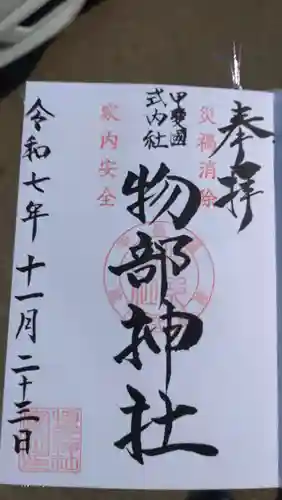 奉拝
災禍消除
甲斐國
式内社
物部神社
家内安全
令和七年十一月二十三日